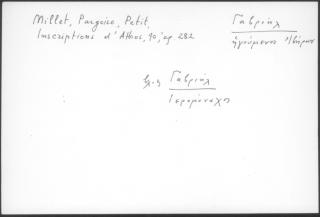 Millet, Pargoire, Petit,
Inscriptions d'Athos, 10, αρ 282
Γαβριήλ
ἡγούμενος Ἰβήρων
βλ. ἃ Γαβριήλ
Ἱερομόναχος